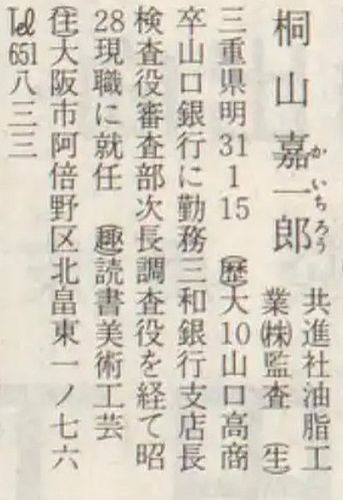 桐山嘉一郎
かいちろう
共進社油脂工
業㈱監査 ㊤
三重県明31 1 15 ㊭大10山口高商
卒山口銀行に勤務三和銀行支店長
検査役審査部次長調査役を経て昭
28現職に就任 ㊟読書美術工芸
㊟大阪市阿倍野区北畠東一ノ七六
Tel 651八三三